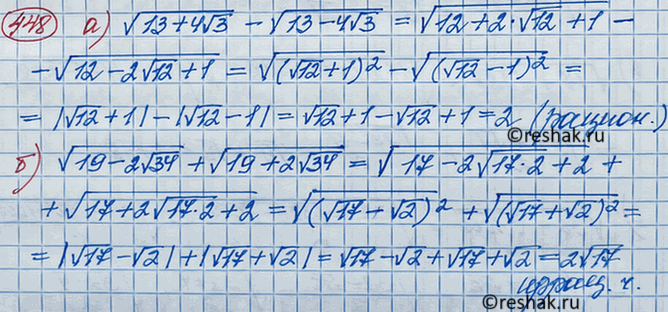 448 а) √(13+4√3) - √(13-4√3) = √(12+2·√12+1) -
- √(12-2√12+1) = √((√12+1)²) - √((√12-1)²) =
= |√12+1| - |√12-1| = √12+1-√12+1=2 (рацион.)
©reshak.ru
б) √(19-2√34) + √(19+2√34) = √(17-2√(17·2)+2) +
+ √(17+2√(17·2)+2) = √((√17-√2)²) + √((√17+√2)²) =
= |√17-√2| + |√17+√2| = √17-√2+√17+√2=2√17
иррац. ч.
©reshak.ru